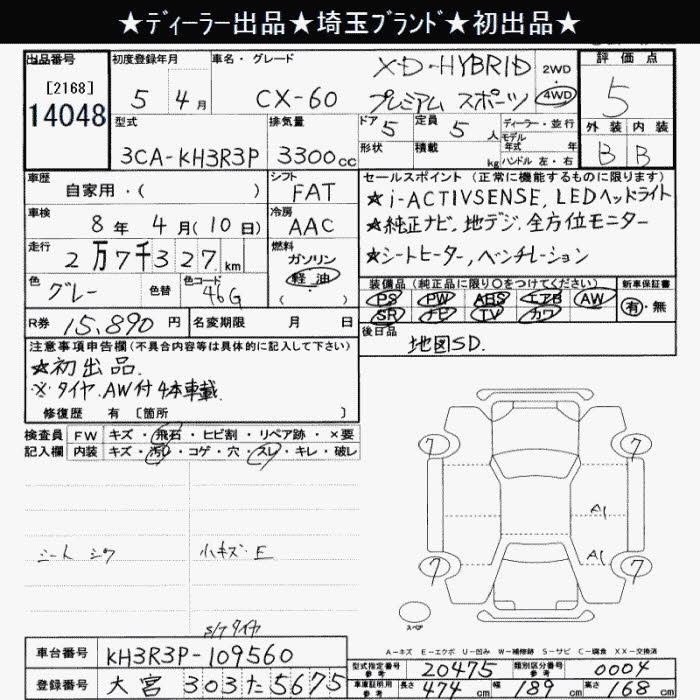 ★ディーラー出品★埼玉ブランド★初出品★
出品番号
[2168]
14048
初度登録年月
5年 4月
車名・グレード
CX-60
XD-HYBRID
プレミアム スポーツ
2WD
・
4WD
評価点
5
外装 内装
B B
型式
3CA-KH3R3P
排気量
3300cc
ドア
5
定員
5人
形状
積載
kg
ディーラー・並行
モデル
年式 年
ハンドル 左・右
車歴
自家用・( )
シフト
FAT
車検
8年 4月(10日)
冷房
AAC
走行
2万7千327km
燃料
ガソリン
軽油
( ・ )
色
グレー
色替
色コード
46G
R券 15,890円
名変期限 月 日
セールスポイント(正常に機能するものに限ります)
★i-ACTIVSENSE, LEDヘッドライト
★純正ナビ, 地デジ, 全方位モニター
★シートヒーター, ベンチレーション
装備品(純正品に限り○をつけてください)
PS PW ABS エアB AW
SR ナビ TV カワ
新車保証書
有・無
後日品
地図SD.
注意事項申告欄(不具合内容等は具体的に記入して下さい)
★初出品.
※タイヤ.AW付4本車載
修復歴 有 [箇所 ]
検査員
記入欄
FW キズ・飛石・ヒビ割・リペア跡・×要
内装 キズ・汚れ・コゲ・穴・スレ・キレ・破レ
シート シワ
小キズ・E
S/T タイヤ
7 7
A1
A1
7 7
スペア
A-キズ E-エクボ U-凹み W-補修跡 S-サビ C-腐食 XX-交換済
車台番号 KH3R3P-109560
登録番号 大宮 303 た 5675
型式指定番号
参考
20475
類別区分番号
参考
0004
車庫証明用
参考
長さ 474cm 幅 189cm 高さ 168cm